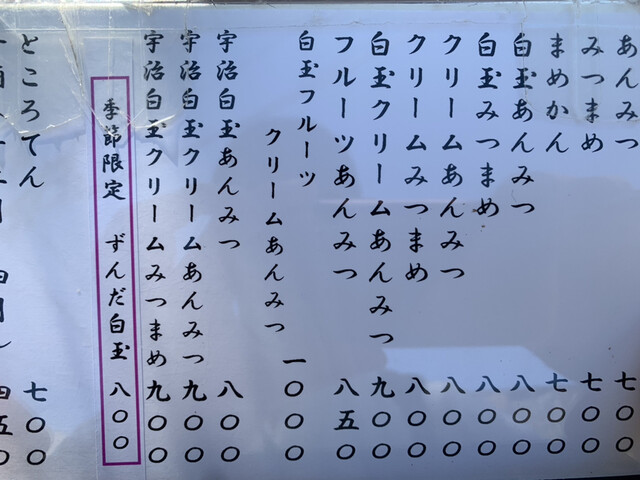 あんみつ 七〇〇
みつまめ 七〇〇
まめかん 七〇〇
白玉あんみつ 八〇〇
白玉みつまめ 八〇〇
クリームあんみつ 八〇〇
クリームみつまめ 八〇〇
白玉クリームあんみつ 九〇〇
フルーツあんみつ 八五〇
白玉フルーツ
クリームあんみつ 一〇〇〇
宇治白玉あんみつ 八〇〇
宇治白玉クリームあんみつ 九〇〇
宇治白玉クリームみつまめ 九〇〇
季節限定 ずんだ白玉 八〇〇
ところてん 七〇〇
四五〇